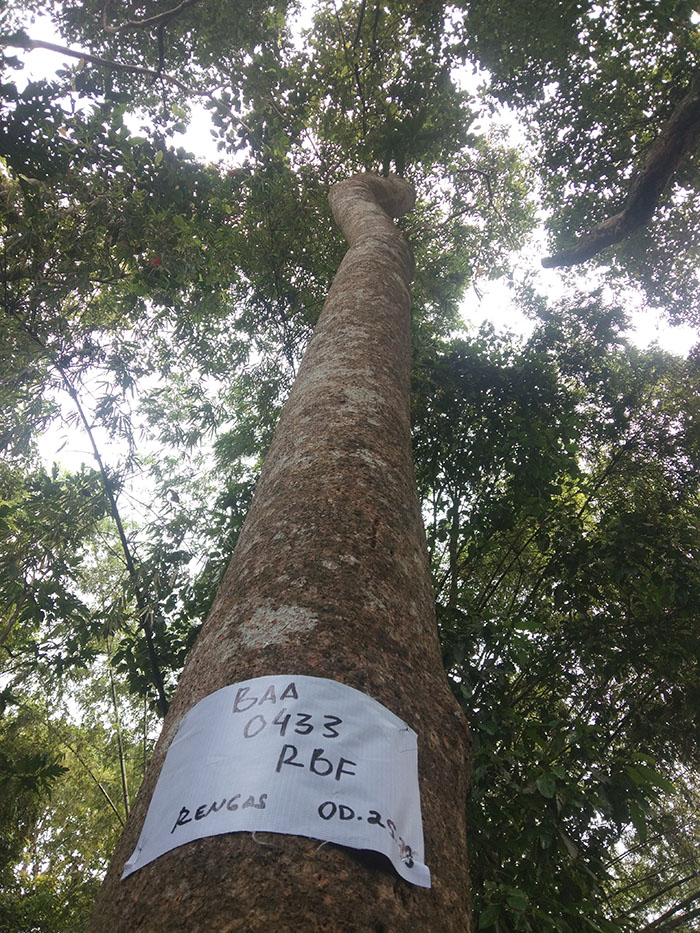 BAA
0433
RBF
RENGAS OD.